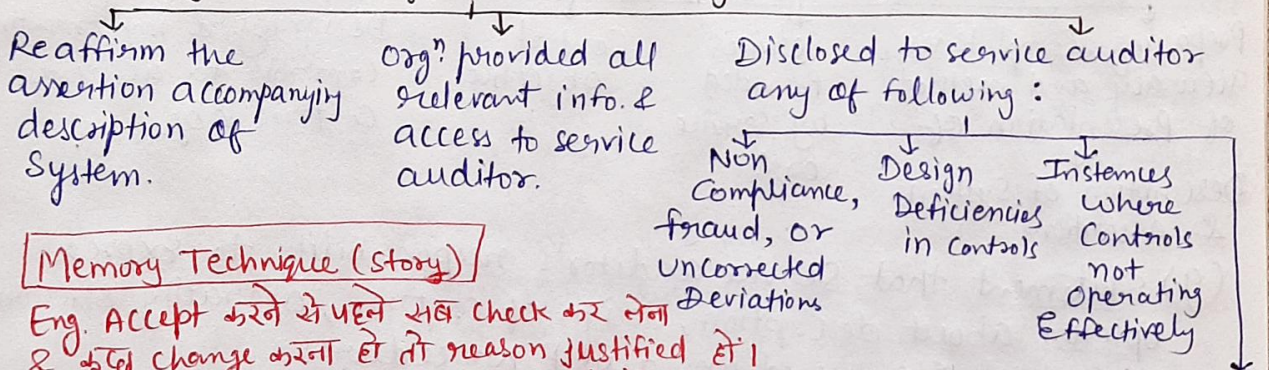 Reaffirm the
assertion accompanying
description of
System.
Orgⁿ. provided all
relevant info. &
access to service
auditor.
Disclosed to service auditor
any of following :
Non
Compliance,
fraud, or
Uncorrected
Deviations
Design
Deficiencies
in controls
Instances
where
Controls
not
Operating
Effectively
Memory Technique (Story)
Eng. Accept करने से पहले सब check कर लेना
& कुछ change करना हो तो reason justified हो।